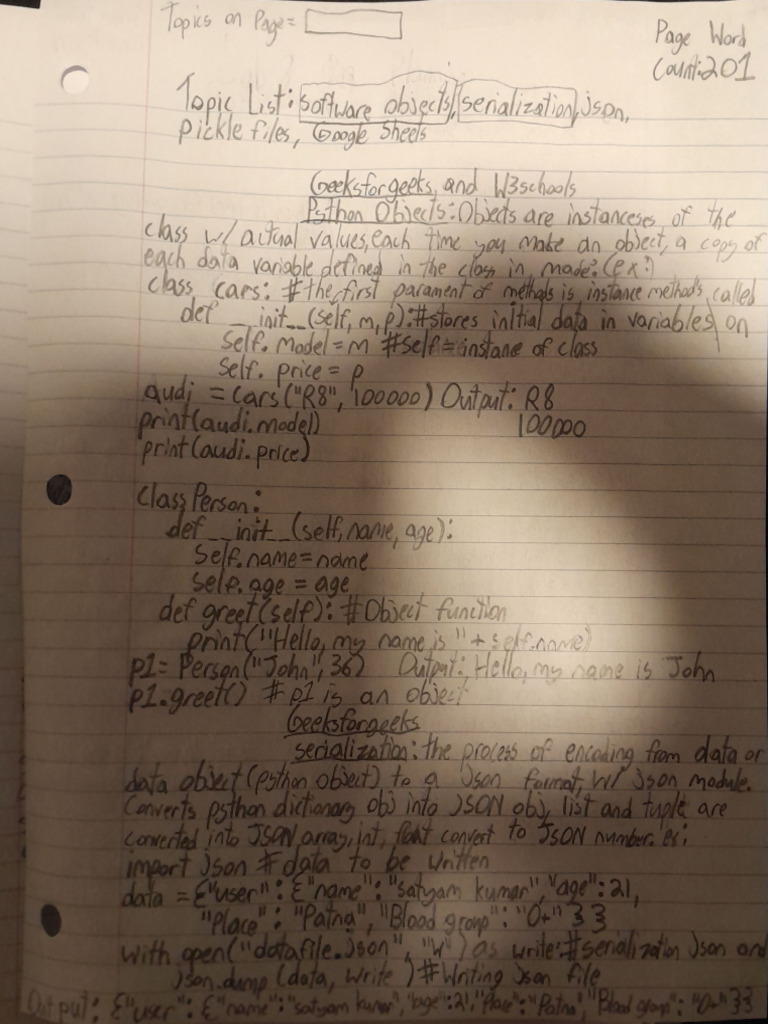 Topics on Page=
Page Word
Count:201
Topic List: software objects, serialization, json,
pickle files, Google Sheets
Geeksforgeeks, and W3schools
Python Objects: Objects are instanceses of the
class w/ actual values, each time you make an object, a copy of
each data variable defined in the class in, made: (ex:)
class cars: #the first parament of methods is instance methods called
def __init__(self, m, p): #stores initial data in variables on
self. model = m #self = instane of class
self. price = p
audi = cars("R8", 100000) Output: R8
print(audi.model) 100000
print(audi.price)
class Person:
def __init__(self, name, age):
self.name = name
self.age = age
def greet(self): #Object function
print("Hello, my name is " + self.name)
p1 = Person("John", 36) Output: Hello, my name is John
p1.greet() #p1 is an object
Geeksforgeeks
serialization: the process of encoding from data or
data object (python object) to a Json format, w/ json module.
Converts python dictionary obj into JSON obj, list and tuple are
converted into JSON array, int, float convert to JSON number. ex:
import json #data to be written
data = {"user": {"name": "satyam kumar", "age": 21,
"Place": "Patna", "Blood group": "O+"}}
with open("datafile.json", "w") as write: #serialization json and
json.dump (data, write) #Writing json file
Output: {"user": {"name": "satyam kumar", "age": 21, "Place": "Patna", "Blood group": "O+"}}